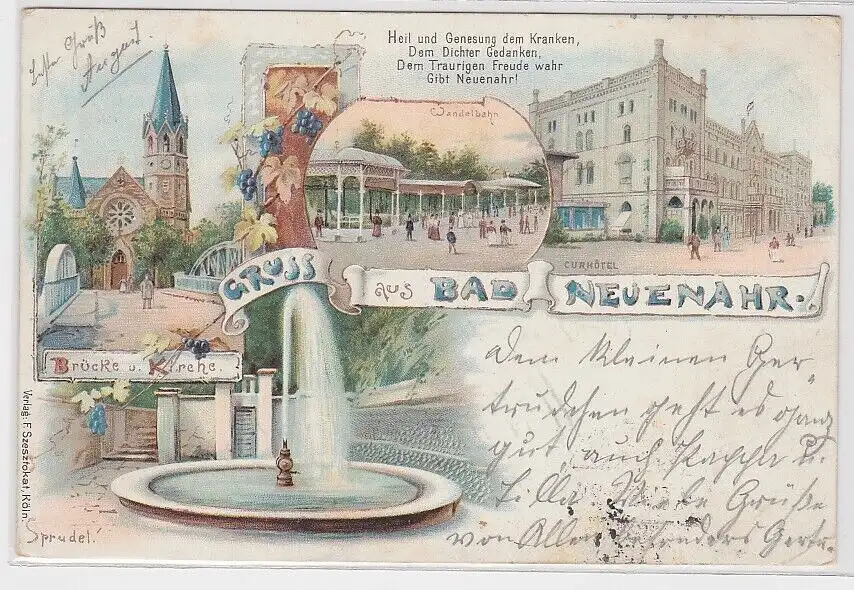 Beste Grüße
August.
Heil und Genesung dem Kranken,
Dem Dichter Gedanken,
Dem Traurigen Freude wahr
Gibt Neuenahr!
Wandelbahn
CURHÔTEL
GRUSS aus BAD NEUENAHR.
Brücke u. Kirche.
Verlag: F. Szesztokat, Köln.
Sprudel.
Dem kleinen Ger-
trudchen geht es ganz
gut, auch u.
Viele Grüße
von Allen besonders